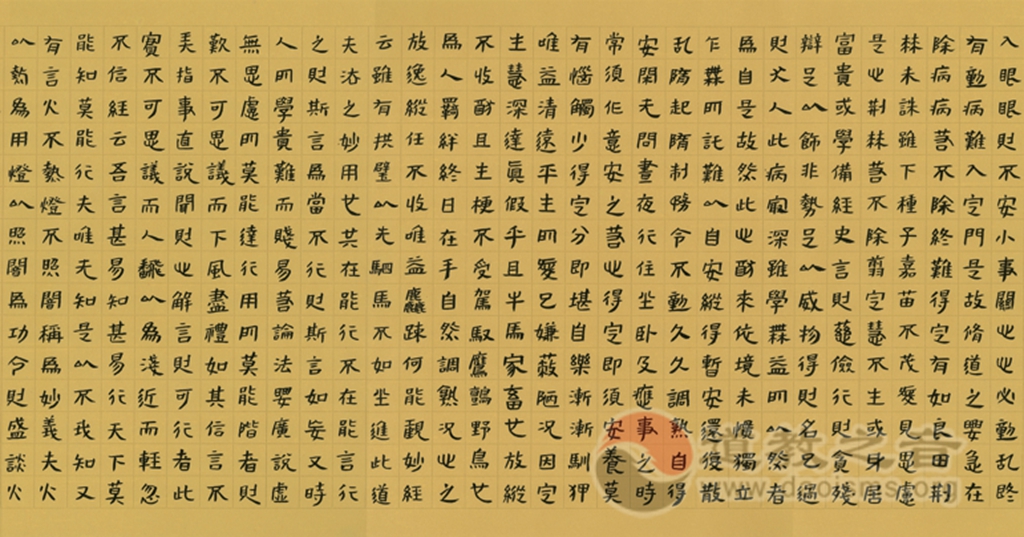 入眼眼則不安小事關心心必動亂既
有動病難入定門是故脩道之要急在
除病病若不除終難得定有如良田荊
棘未誅雖下種子嘉苗不茂愛見思慮
是心荊棘若不除翦定慧不生或身居
富貴或學備經史言則慈儉行則貪殘
辯足以飾非勢足以威物得則名己過
則尤人此病寂深雖學無益所以然者
為自是故然此心猶來依境未慣獨立
乍無所託難以自安縱得暫安還復散
亂隨起隨制務令不動久久調熟自得
安閑无問晝夜行住坐卧及應事之時
常須作意安之若心得定即須安養莫
有惱觸少得定分即堪自樂漸漸馴狎
唯益清遠平生所愛已嫌蔽陋況因定
生慧深達真假乎且牛馬家畜也放縱
不收猶且生梗不受駕馭鷹鸇野鳥也
為人羈絆終日在手自然調熟況心之
放逸縱任不收唯益麤疎何能觀妙經
云雖有拱璧以先駟馬不如坐進此道
夫法之妙用也其在能行不在能言行
之則斯言為當不行則斯言如妄又時
人所學貴難而賤易若論法要廣說虛
無思慮所莫能達行用所莫能階者則
歎不可思議而下風盡禮如其信言不
美指事直說聞則心解言則可行者此
實不可思議而人飜以為淺近而輕忽
不信經云吾言甚易知甚易行天下莫
能知莫能行夫唯无知是以不我知又
有言火不熱燈不照闇稱為妙義夫火
以熱為用燈以照闇為功今則盛談火
道教之音
www.daoisms.org